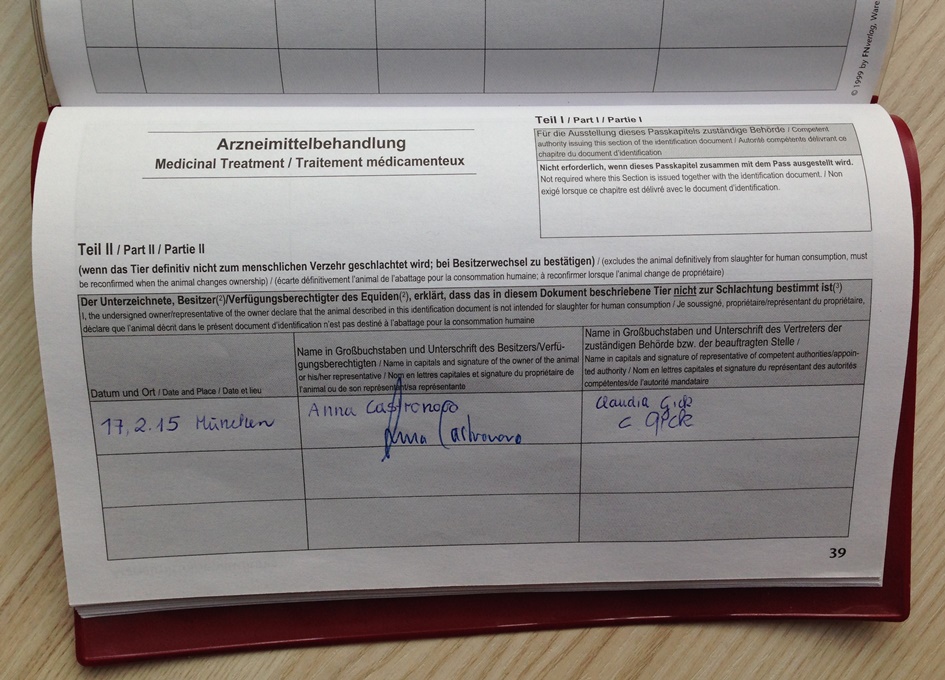 © 1999 by FNverlag, Ware
Arzneimittelbehandlung
Medicinal Treatment / Traitement médicamenteux
Teil I / Part I / Partie I
Für die Ausstellung dieses Passkapitels zuständige Behörde / Competent
authority issuing this section of the identification document / Autorité compétente délivrant ce
chapitre du document d'identification
Nicht erforderlich, wenn dieses Passkapitel zusammen mit dem Pass ausgestellt wird.
Not required where this Section is issued together with the identification document. / Non
exigé lorsque ce chapitre est délivré avec le document d'identification.
Teil II / Part II / Partie II
(wenn das Tier definitiv nicht zum menschlichen Verzehr geschlachtet wird; bei Besitzerwechsel zu bestätigen) / (excludes the animal definitively from slaughter for human consumption, must
be reconfirmed when the animal changes ownership) / (écarte définitivement l'animal de l'abattage pour la consommation humaine; à reconfirmer lorsque l'animal change de propriétaire)
Der Unterzeichnete, Besitzer(²)/Verfügungsberechtigter des Equiden(²), erklärt, dass das in diesem Dokument beschriebene Tier nicht zur Schlachtung bestimmt ist(³)
I, the undersigned owner/representative of the owner declare that the animal described in this identification document is not intended for slaughter for human consumption / Je soussigné, propriétaire/représentant du propriétaire,
déclare que l'animal décrit dans le présent document d'identification n'est pas destiné à l'abattage pour la consommation humaine
Datum und Ort / Date and Place / Date et lieu
Name in Großbuchstaben und Unterschrift des Besitzers/Verfü-
gungsberechtigten / Name in capitals and signature of the owner of the animal
or his/her representative / Nom en lettres capitales et signature du propriétaire de
l'animal ou de son représentant/sa représentante
Name in Großbuchstaben und Unterschrift des Vertreters der
zuständigen Behörde bzw. der beauftragten Stelle /
Name in capitals and signature of representative of competent authorities/appoin-
ted authority / Nom en lettres capitales et signature du représentant des autorités
compétentes/de l'autorité mandataire
17.2.15 München
Anna Castronovo
Anna Castronovo
Claudia Gick
C Gick
39